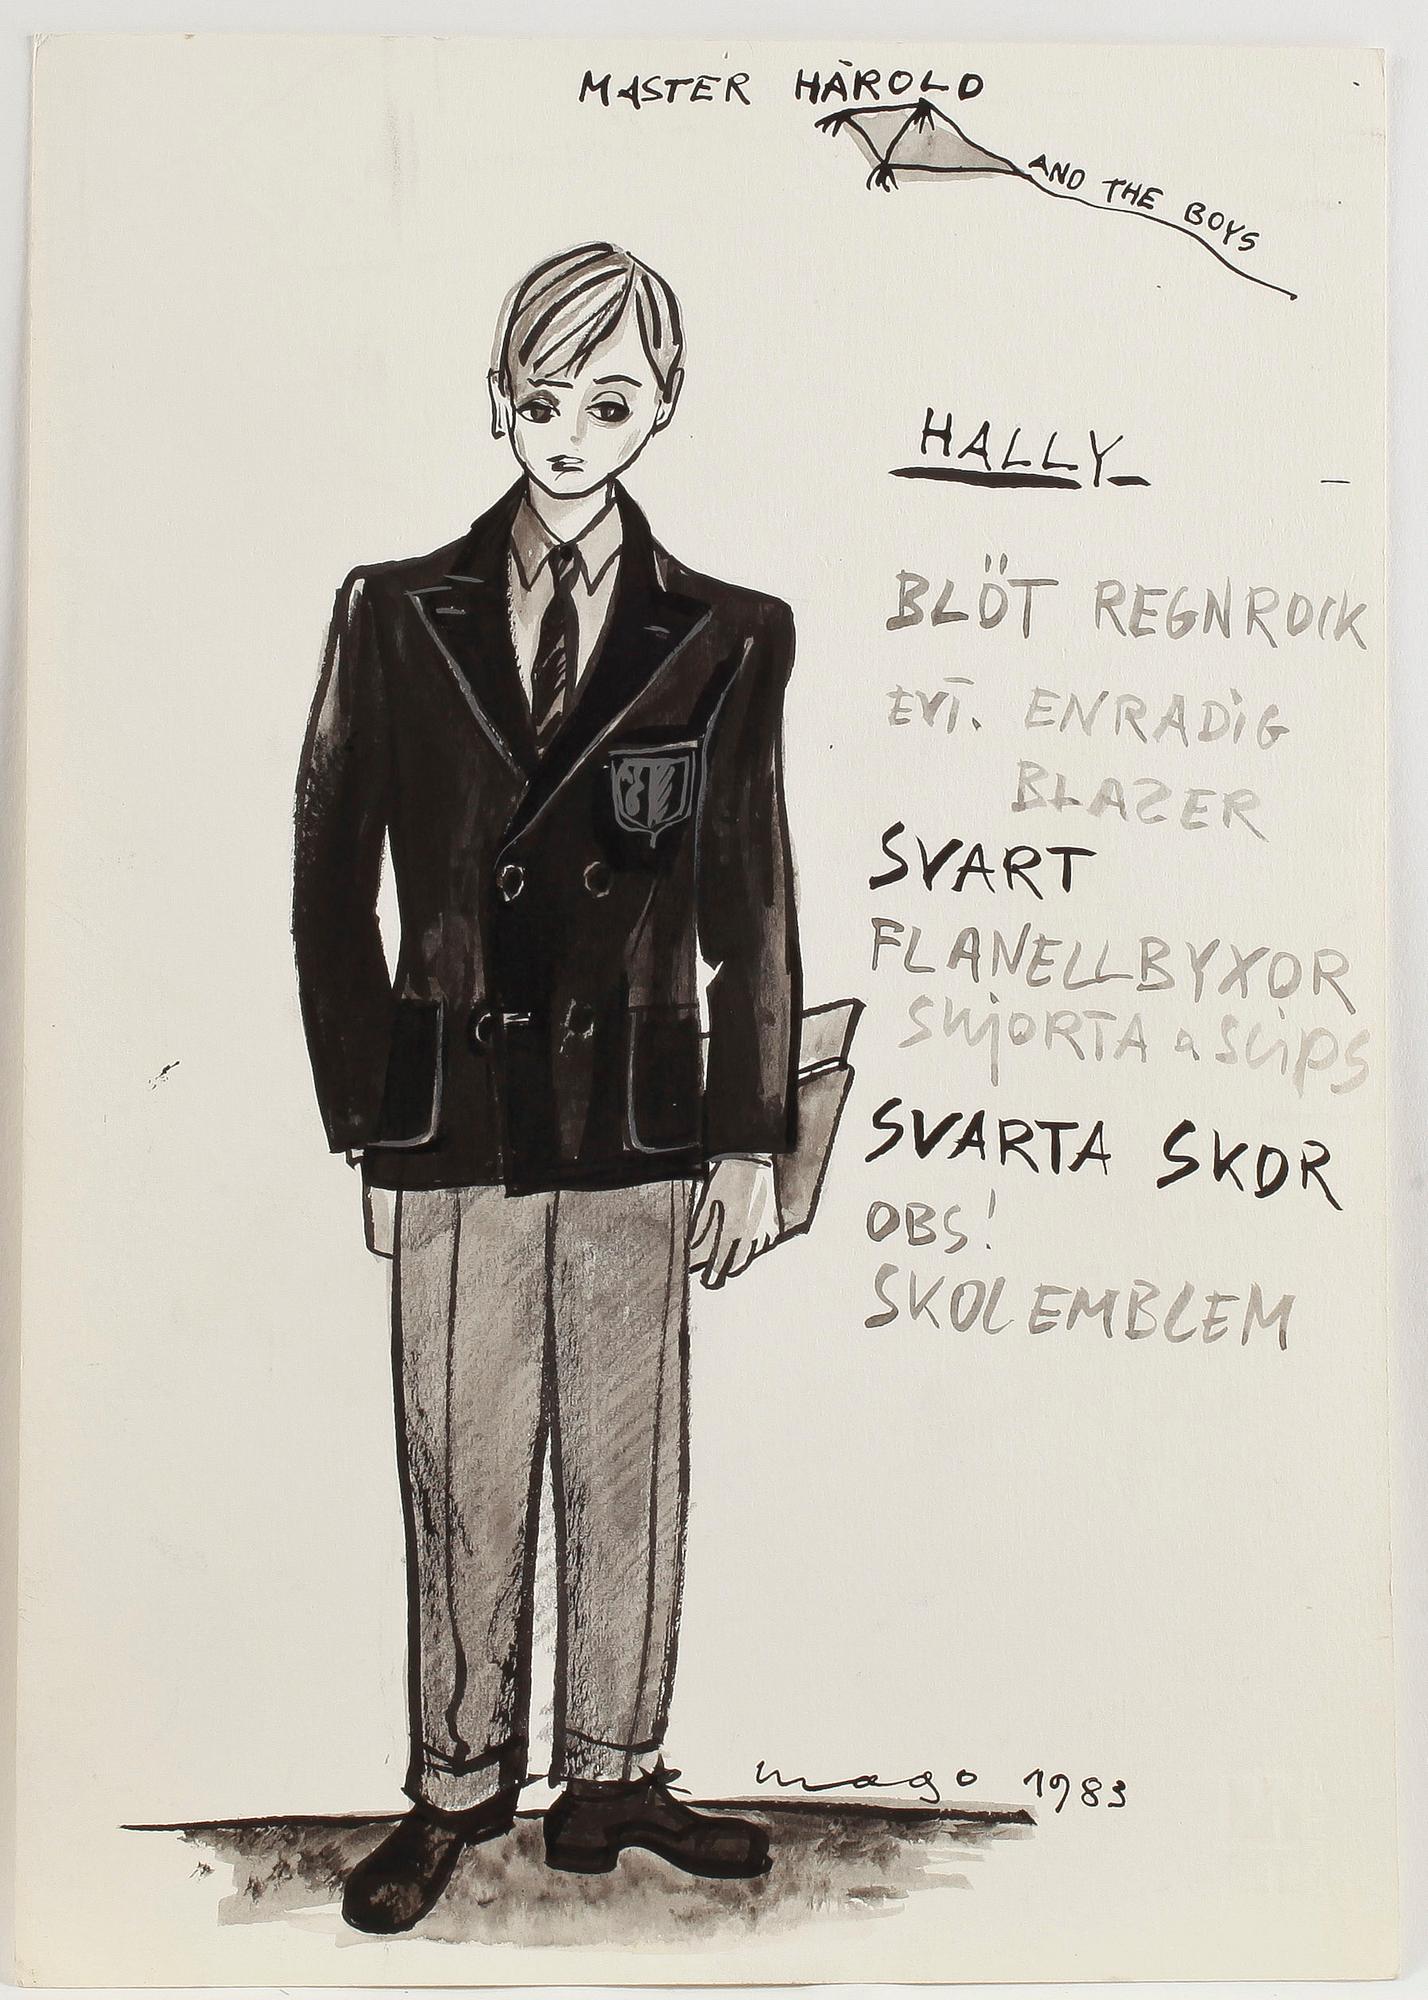 MASTER HÀROLD
AND THE BOYS
HALLY
BLÖT REGNROCK
EVT. ENRADIG
BLAZER
SVART
FLANELLBYXOR
SKJORTA a SLIPS
SVARTA SKOR
OBS!
SKOLEMBLEM
mago 1983